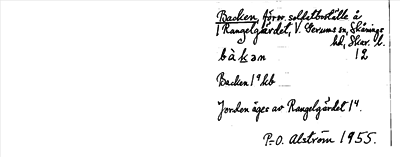 Backen, förr. soldatboställe å
1 Rangelgärdet, V. Gerums sn, Skånings
hd, Skar. l.
bàkən 12
Backen 1⁹ kb
Jorden äges av Rangelgärdet 1⁴.
P-O. Alström 1955.